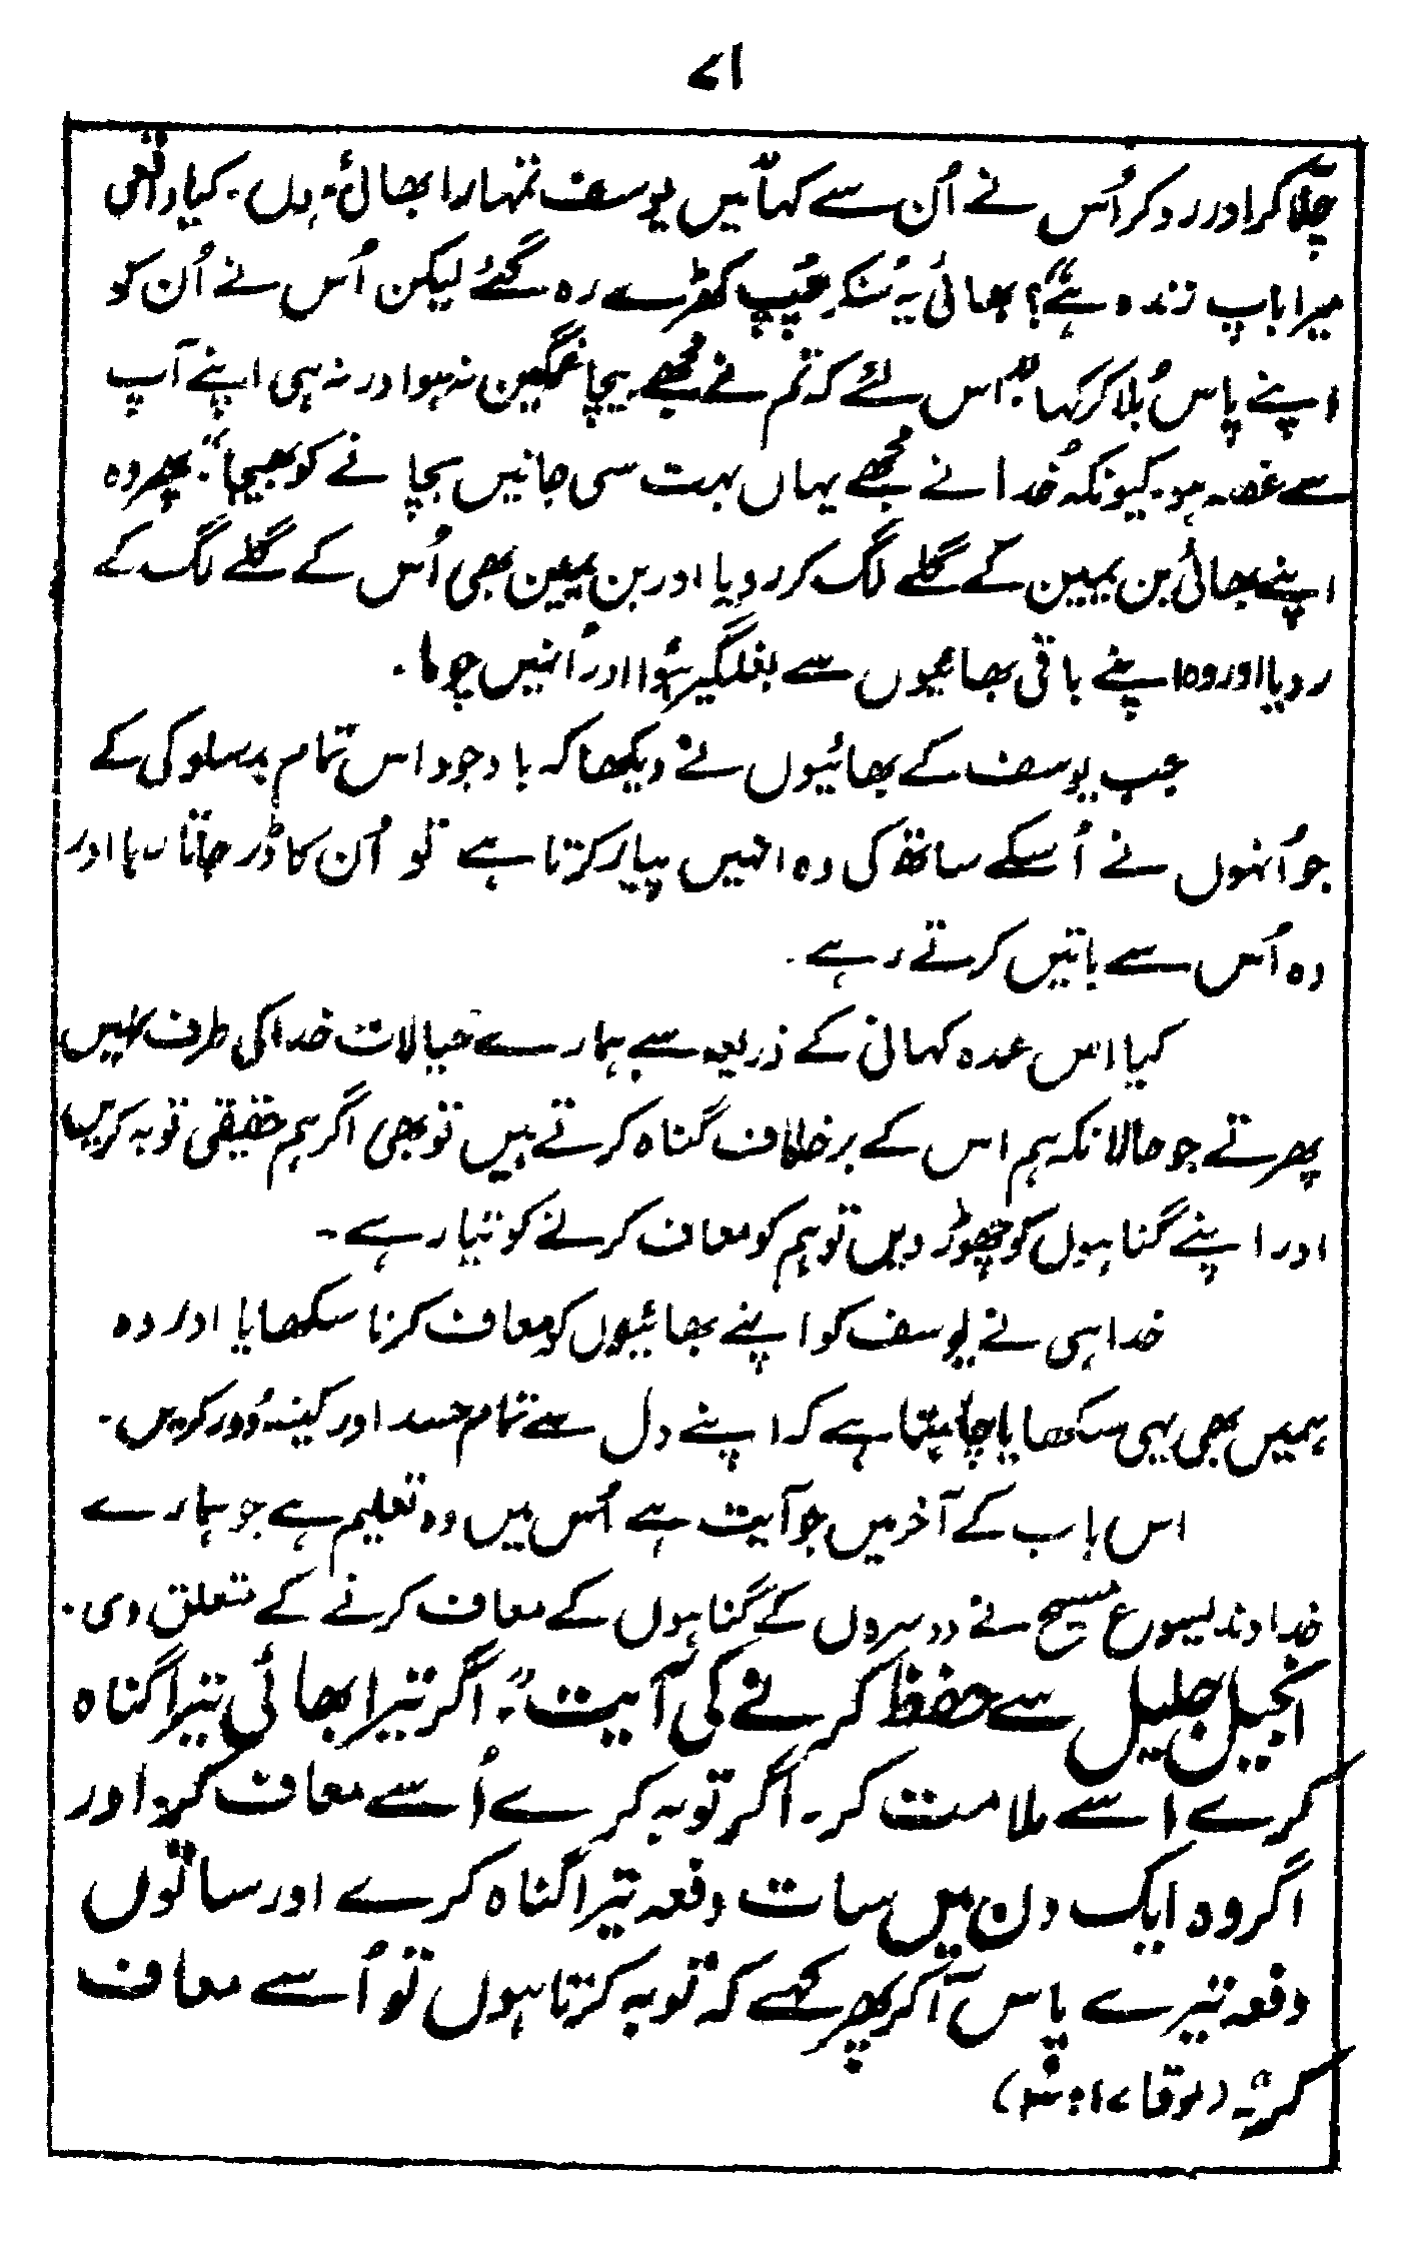 ۷۱
چلّا کر اور رو کر اُس نے اُن سے کہا "میں یوسف تمہارا بھائی ہوں۔ کیا واقعی
میرا باپ زندہ ہے"؟ بھائی یہ سُنکر چُپ کھڑے رہ گئے لیکن اُس نے اُن کو
اپنے پاس بُلا کر کہا "اس لئے کہ تم نے مجھے بیچا غمگین نہ ہو اور نہ ہی اپنے آپ
سے غصہ ہو۔ کیونکہ خُدا نے مجھے یہاں بہت سی جانیں بچانے کو بھیجا"۔ پھر وہ
اپنے بھائی بن یمین کے گلے لگ کر رویا اور بن یمین بھی اُس کے گلے لگ کے
رویا اور وہ اپنے باقی بھائیوں سے بغلگیر ہُوا اور اُنہیں چوما۔
جب یوسف کے بھائیوں نے دیکھا کہ باوجود اس تمام بدسلوکی کے
جو اُنہوں نے اُسکے ساتھ کی وہ انہیں پیار کرتا ہے تو اُن کا ڈر جاتا رہا اور
وہ اُس سے باتیں کرتے رہے۔
کیا اس عمدہ کہانی کے ذریعہ سے ہمارے خیالات خدا کی طرف نہیں
پھرتے جو حالانکہ ہم اس کے برخلاف گناہ کرتے ہیں تو بھی اگر ہم حقیقی توبہ کریں
اور اپنے گناہوں کو چھوڑ دیں تو ہم کو معاف کرنے کو تیار ہے۔
خدا ہی نے یوسف کو اپنے بھائیوں کو معاف کرنا سکھایا اور وہ
ہمیں بھی یہی سکھایا چاہتا ہے کہ اپنے دل سے تمام حسد اور کینہ دُور کریں۔
اس باب کے آخر میں جو آیت ہے اُس میں وہ تعلیم ہے جو ہمارے
خداوند یسوع مسیح نے دوسروں کے گناہوں کے معاف کرنے کے متعلق دی۔
انجیل جلیل سے حفظ کرنے کی آیت :۔ "اگر تیرا بھائی تیرا گناہ
کرے اسے ملامت کر۔ اگر توبہ کرے اُسے معاف کر۔ اور
اگر وہ ایک دن میں سات دفعہ تیرا گناہ کرے اور ساتوں
دفعہ تیرے پاس آکر پھر کہے کہ توبہ کرتا ہوں تو اُسے معاف
کر"۔ (لوقا ۱۷: